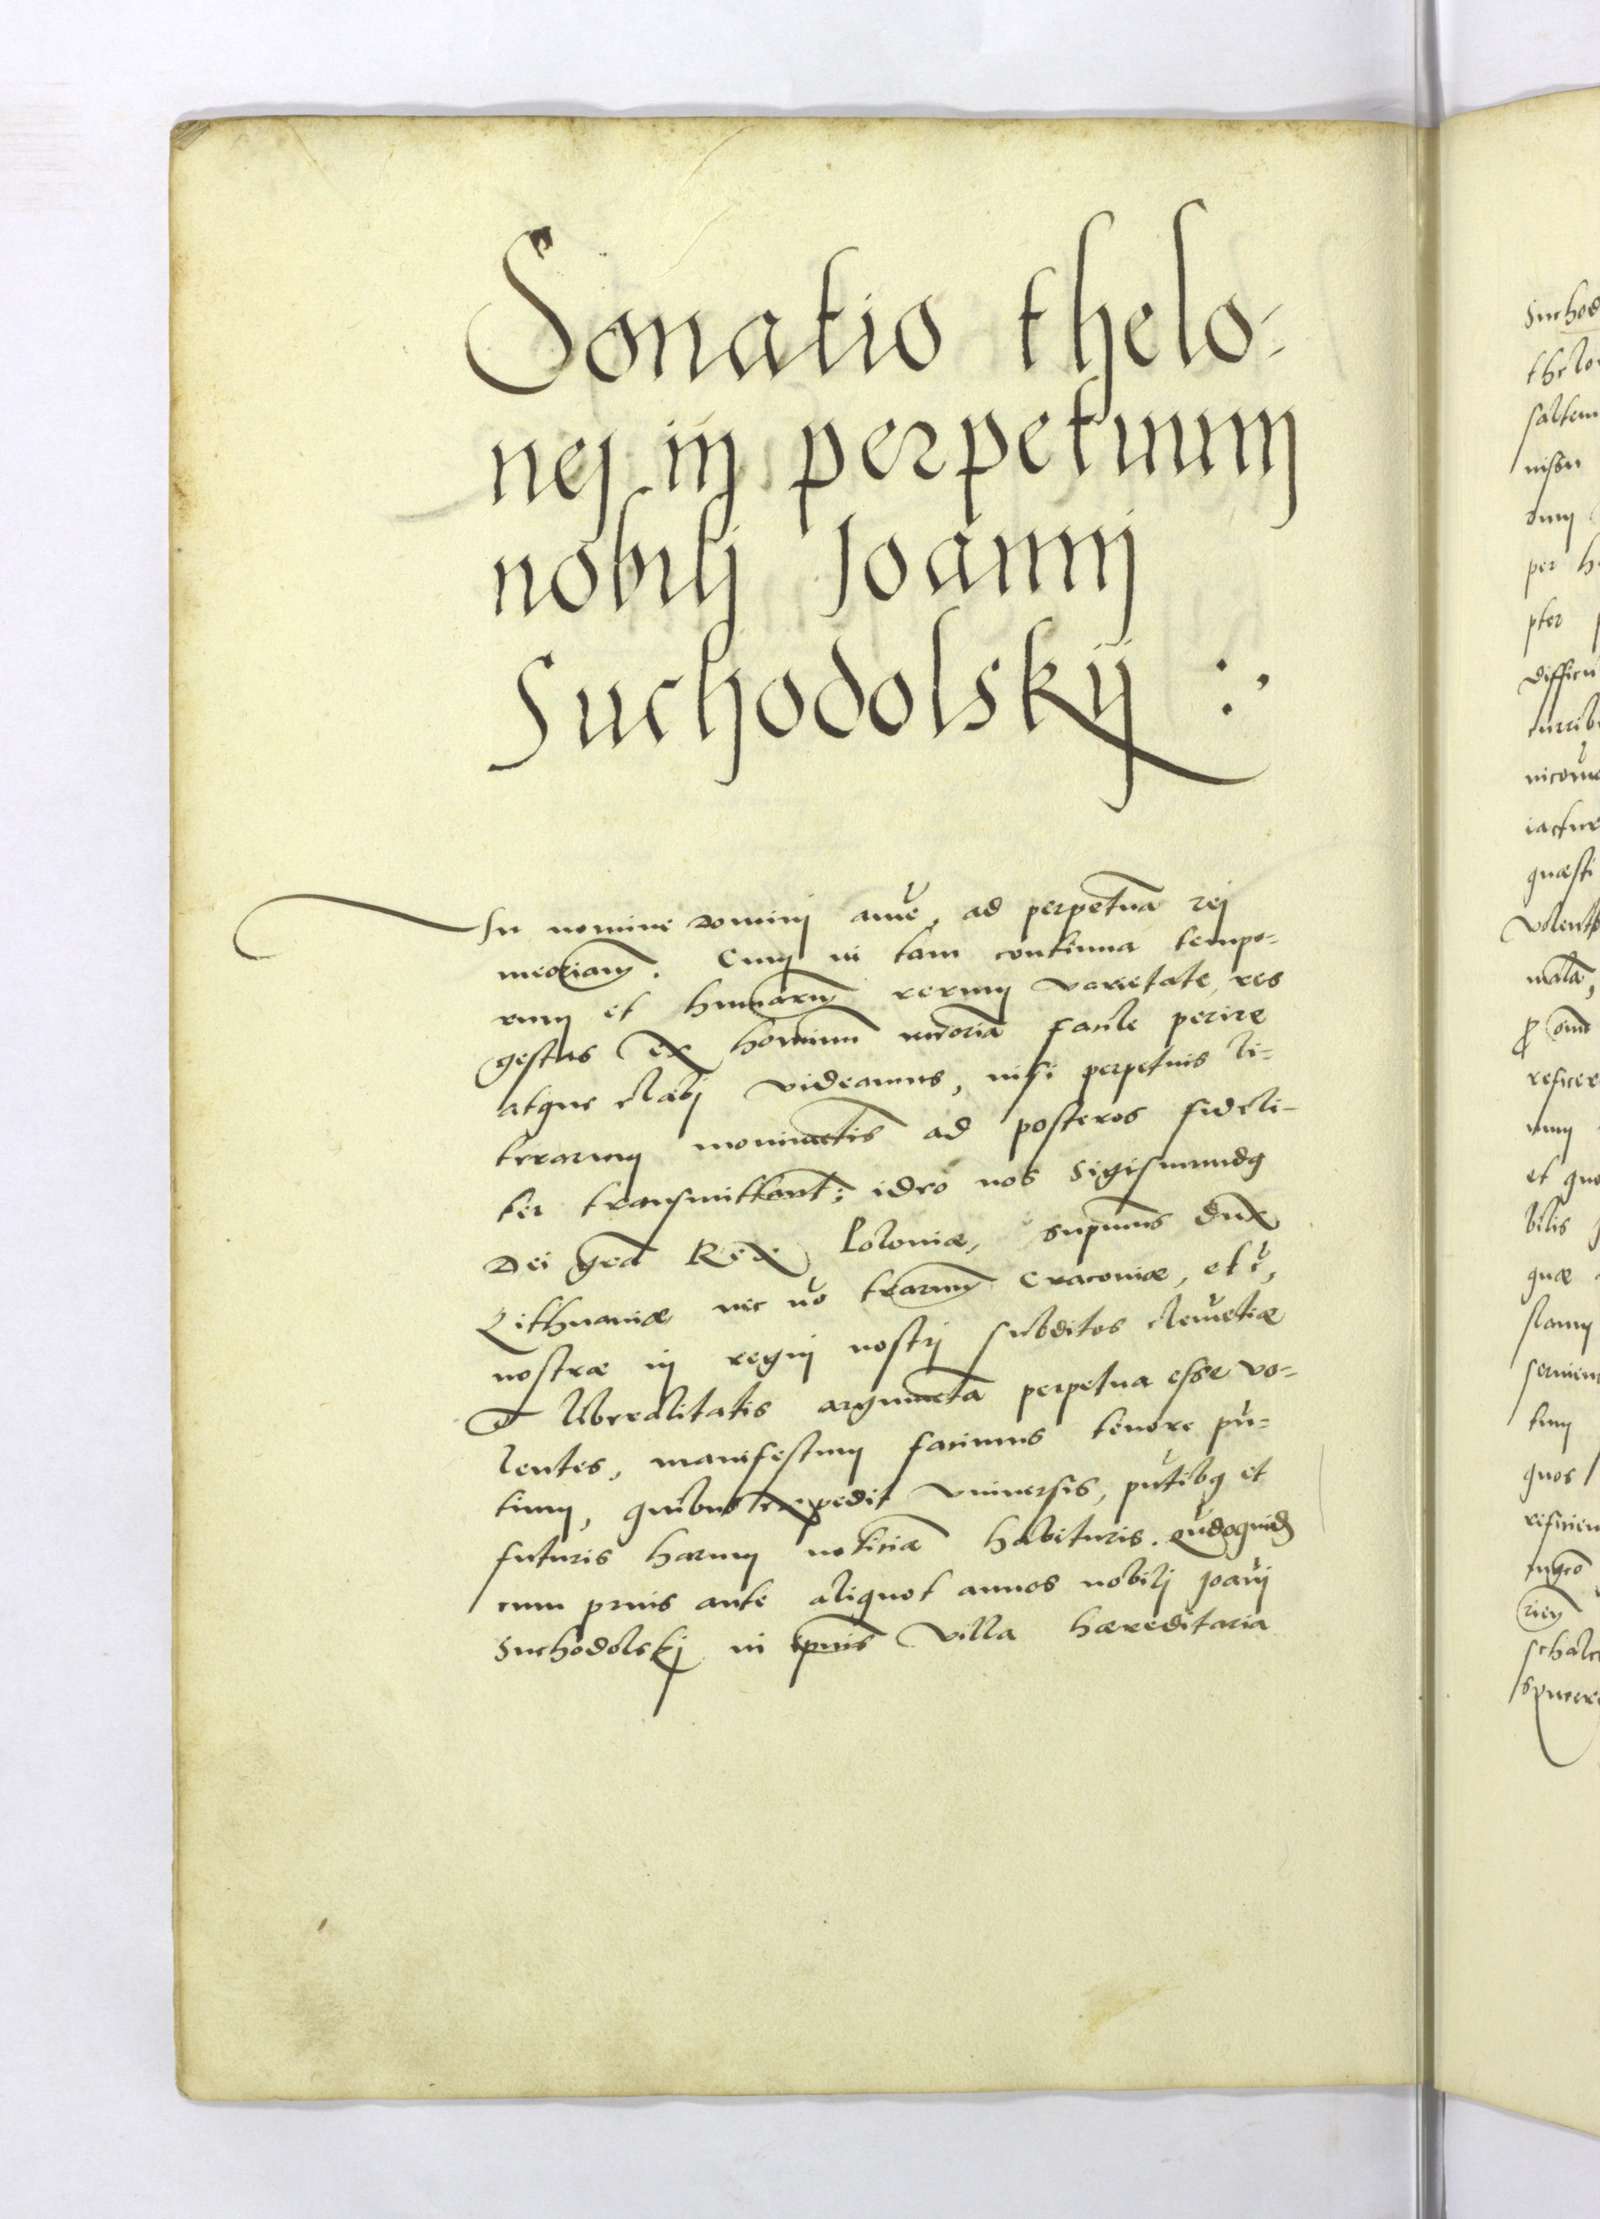 Donatio thelo-
nej in perpetuum
nobilj Joannj
Suchodolskij :,
In nomine Dominj ame, ad perpetua rej
meoriam. Cum in tam continua tempo-
rum et humarum rerum varietate, res
gestas ex hominum meoria facile perire
atque elabj videamus, nisi perpetuis li-
terarum monimetis ad posteros fideli-
ter transmittant; ideo nos Sigismundq
Dei gra Rex Poloniæ, supmus dux
Lithuaniæ nec no terarum Craconiæ, etc,
nostræ in regnj nostrj subditos clemetiæ
et liberalitatis argumeta perpetua esse vo-
lentes, manifestum facimus tenore pn-
tium, quibus expedit vniuersis, pntibq et
futuris harum noticia habituris. Qudoquide
cum prius ante aliquot annos nobilj Joanj
Suchodolskj in ipius villa hæreditaria
Suchod
thelo
saltem
dum
per h
pter
difficu
iactur
quæsti
volent
male,
reficere
et quo
bilis
quæ
seruien
tum
quos
reficien